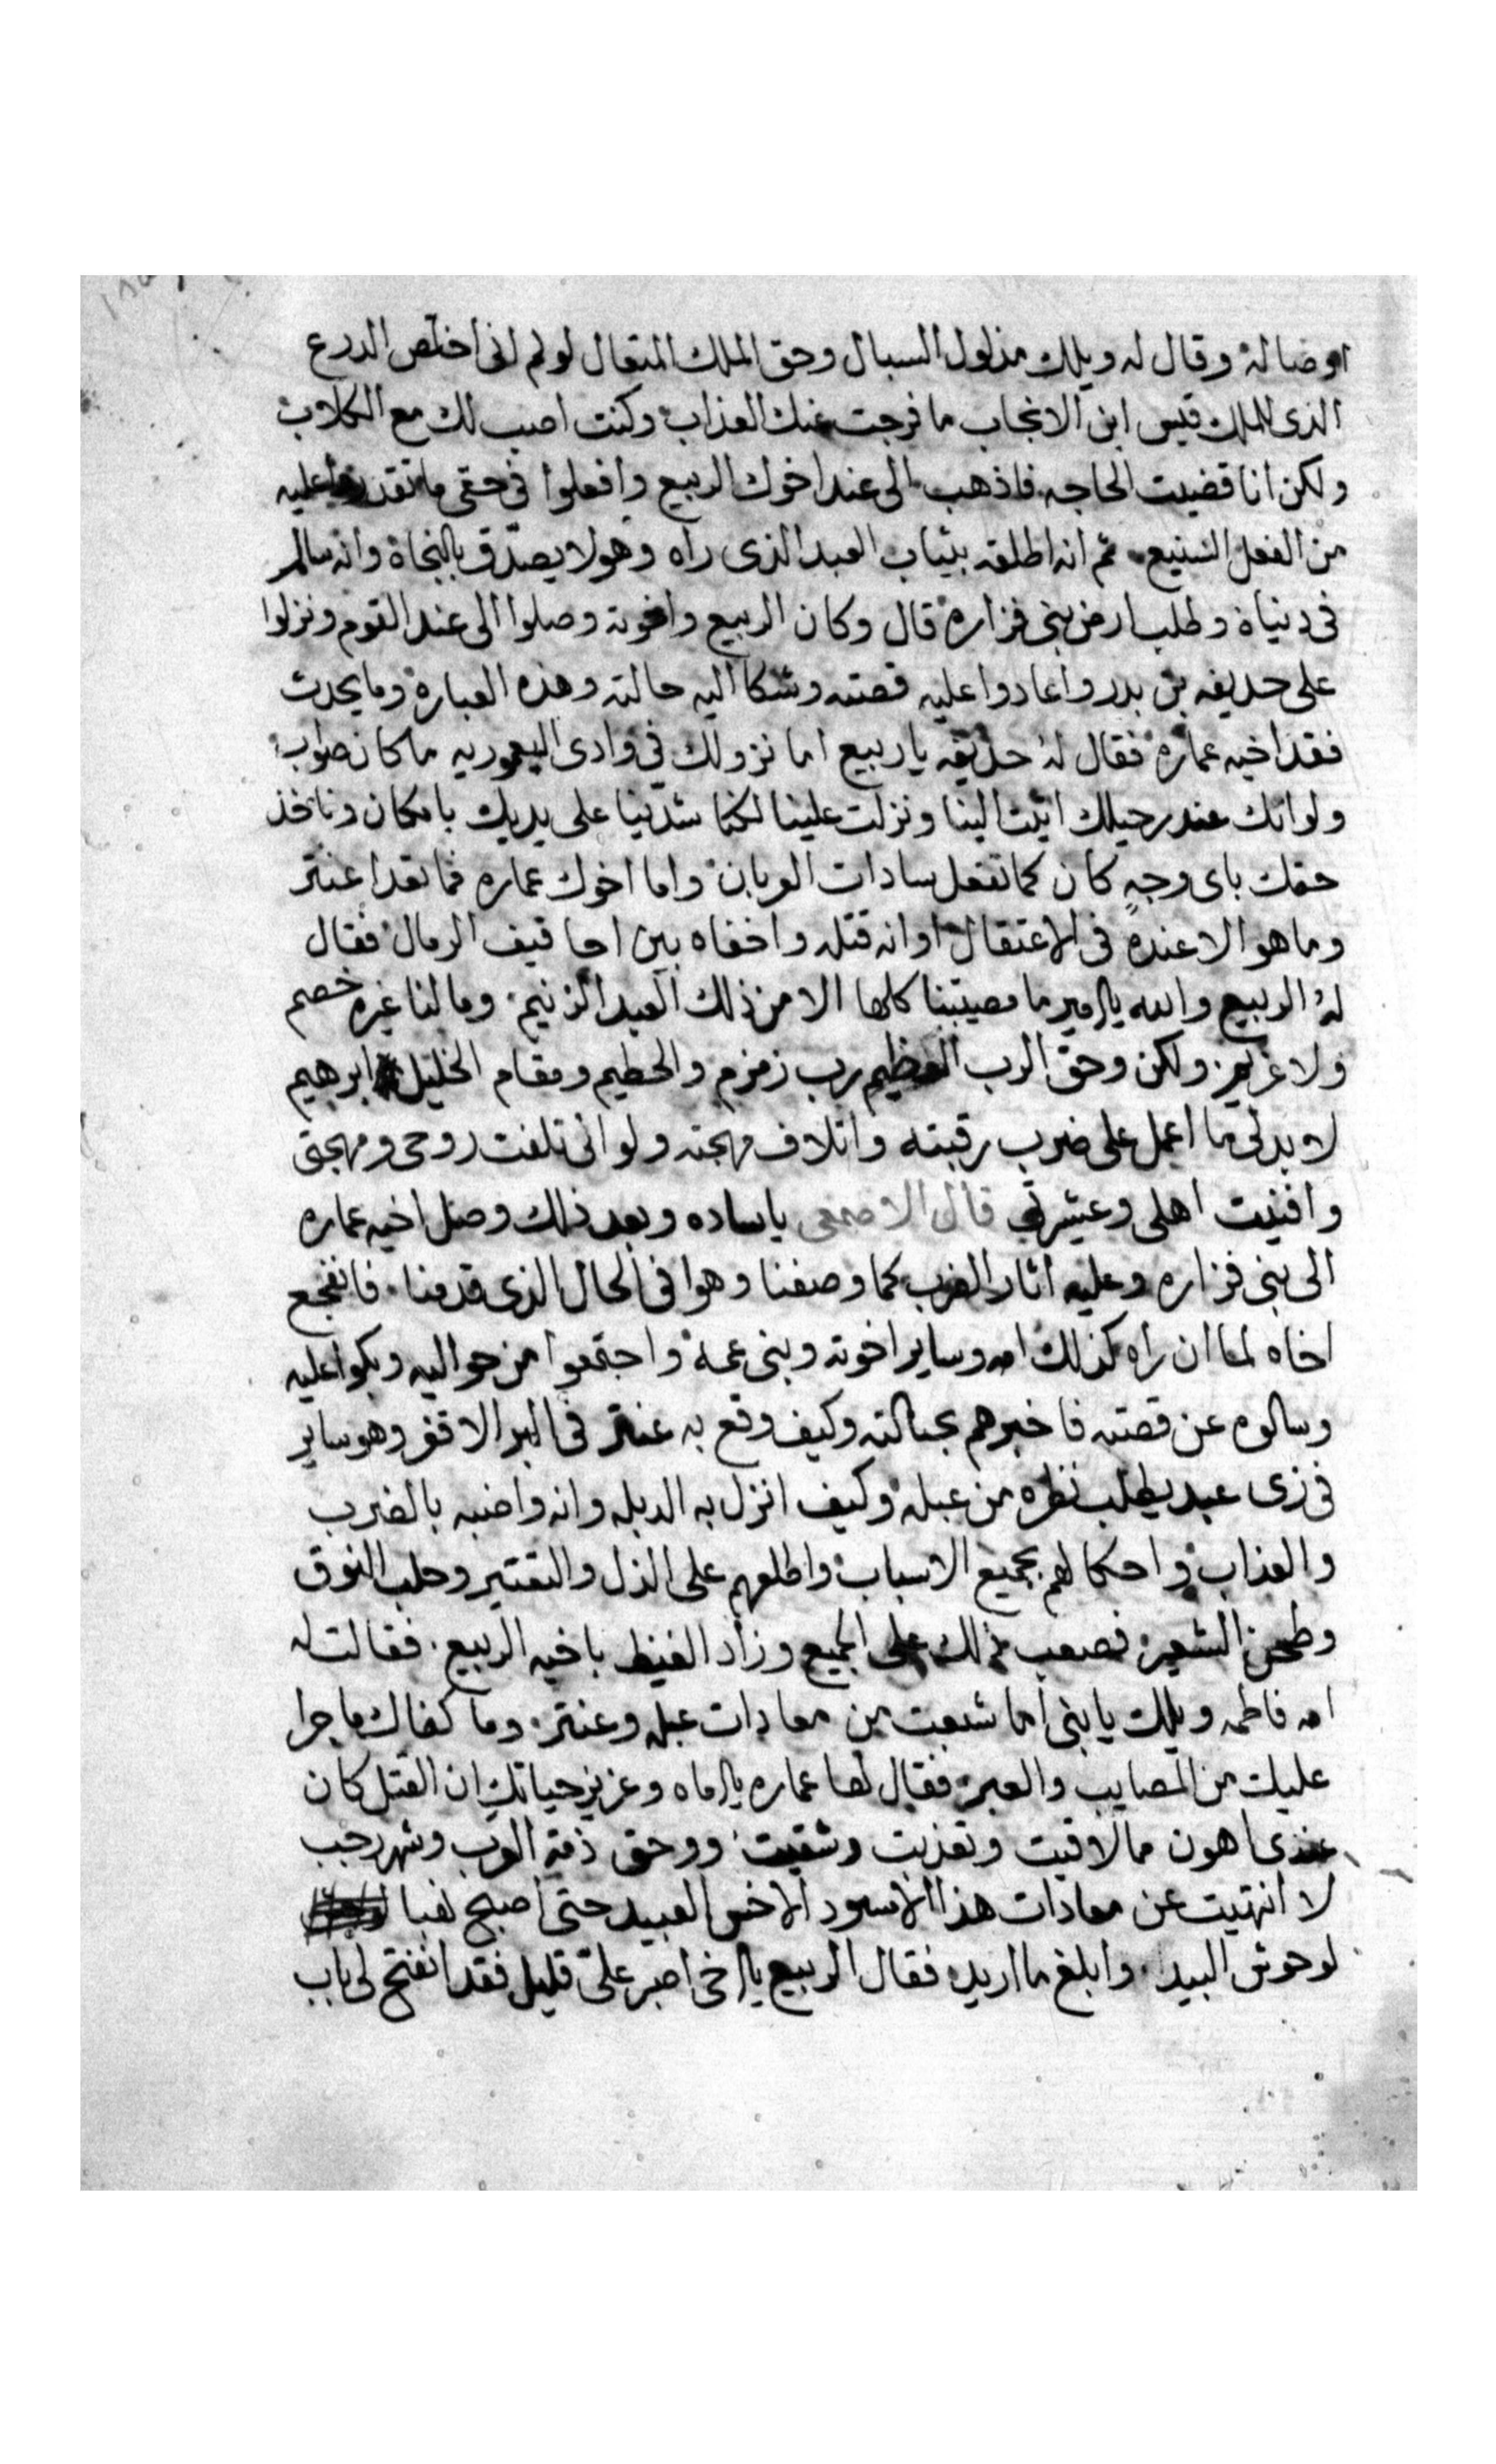 اوصاله وقال له ويلك مذلول السبال وحق الملك المتعال لو لم انى اخلّص الدرع
الذى للملك قيس ابن الانجاب ما فرجت عنك العذاب وكنت اصيب لك مع الكلاب
ولكن انا قضيت الحاجه فاذهب الى عند اخوك الربيع وافعلوا فى حقى ما تقدروا عليه
من الفعل الشنيع ثم انه اطلقه بثياب العبد الذى راه وهو لا يصدّق بالنجاة وانه سالم
فى دنياة وطلب ارض بنى فزاره قال وكان الربيع واخوته وصلوا الى عند القوم ونزلوا
على حديفه بن بدر واعادوا عليه قصته وشكا اليه حالته وهذه العباره وما يحدث
فقد اخيه عماره فقال له حذيفه يا ربيع اما نزولك فى وادى اليعموريه ما كان صواب
ولو انك عند رحيلك اتيت الينا ونزلت علينا لكنا شدينا على يديك بامكان وناخذ
حقك باى وجهٍ كان كما تفعل سادات العربان واما اخوك عماره فما تعدا عنتر
وما هو الا عنده فى الاعتقال او انه قتله واخفاه بين احاقيف الرمال فقال
له الربيع والله يا امير ما مصيبتنا كلها الا من ذلك العبد الزنيم وما لنا غيره خصم
ولا غريم ولكن وحق الرب العظيم رب زمزم والحطيم ومقام الخليل ابرهيم
لا بد لى ما اعمل على ضرب رقبته واتلاف مهجته ولو انى تلفت روحى ومهجتى
وافنيت اهلى وعشيرتى قال الاصمعى يا ساده وبعد ذلك وصل اخيه عماره
الى بنى فزاره وعليه اثار الضرب كما وصفنا وهوا فى الحال الذى قدمنا فانفجع
اخاه لما ان راه كذلك امه وساير اخوته وبنى عمه واجتمعوا من حواليه وبكوا عليه
وسالوه عن قصته فاخبرهم بحالته وكيف وقع به عنتر فى البر الاقفر وهو ساير
فى زى عبد يطلب نظره من عبله وكيف انزل به الدبله وانه واضبه بالضرب
والعذاب واحكا لهم بجميع الاسباب واطلعهم على الذل والتقتير وحلب النوق
وطحن الشعير فصعب ذلك على الجميع وزاد الغيظ باخيه الربيع فقالت له
امه فاطمه ويلك يا بنى اما شبعت من معادات عبله وعنتر وما كفاك ما جرا
عليك من المصايب والعبر فقال لها عماره يا اماه وعزيز حياتك ان القتل كان
عندى اهون مما لاقيت وتعذبت وشقيت ووحق ذمة العرب وشهر رجب
لا انتهيت عن معادات هذا الاسود الاخس العبيد حتى اصبح نهبا
لوحوش البيد وابلغ ما اريد فقال الربيع يا اخى اصبر علىّ قليل فقد انفتح لى باب